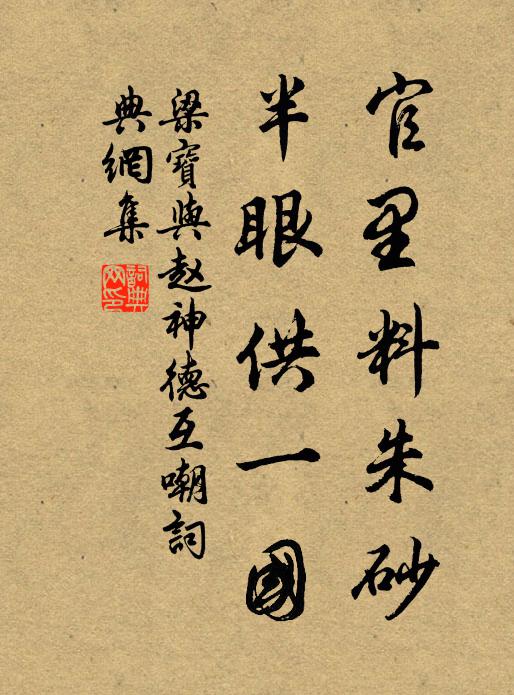 官里料朱砂
半眼供一國
梁寶與赵神德互嘲詞
典網集
詞典網印